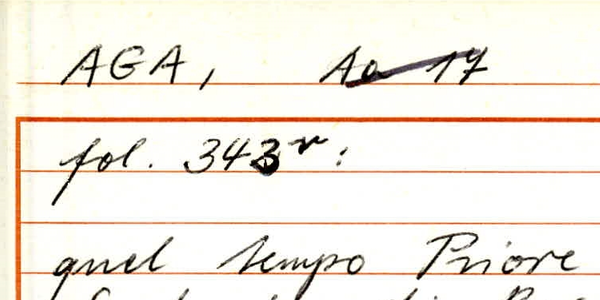 AGA, Aa 17
fol. 343v:
quel tempo Priore